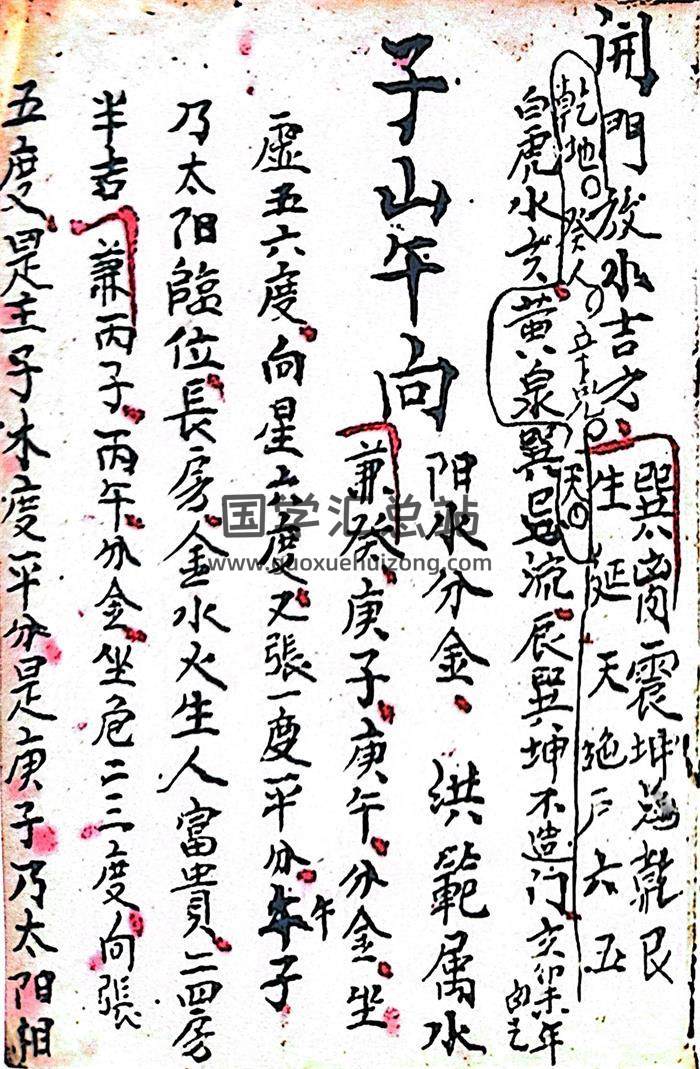 開門放水吉方
巽离震坤兌乾艮
生延天絶尸六五
乾地 癸人 天
白虎水亥黃泉巽巳流辰巽坤不造门亥卯未年
子山午向
阳水分金 洪範属水
兼癸庚子庚午分金坐
虛五六度向星六度又張一度平分午子
午
乃太阳臨位長房金水火生人富貴二四房
半吉兼丙子丙午分金坐危二三度向張
五度是主子木度平分是庚子乃太阳相
国学汇总站
www.guoxuehuizong.com